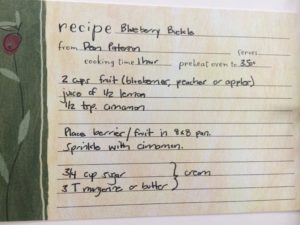 recipe Blueberry Buckle
from Dean Paterson serves
cooking time 1 hour preheat oven to 350°
2 cups fruit (blueberries, peaches or apples)
juice of 1/2 lemon
1/2 tsp. cinnamon
Place berries/fruit in 8x8 pan.
Sprinkle with cinnamon.
3/4 cup sugar
3 T margarine or butter } cream